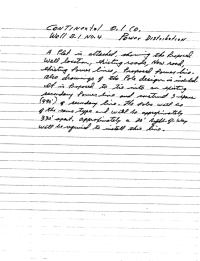 CONTINENTAL OIL CO.
Well B.I. No. 4 Power Distribution
A Plat is attached, showing the Proposed
Well location, existing roads, New road,
existing Power lines, Proposed Power line.
Also drawings of the Pole design is included.
It is Proposed to tie into an existing
secondary Power line and construct 3 spans
(990') of secondary line. The Poles will be
of the same type and will be approximately
330' apart. Approximately a 20' Right-of-Way
will be required to install this line.